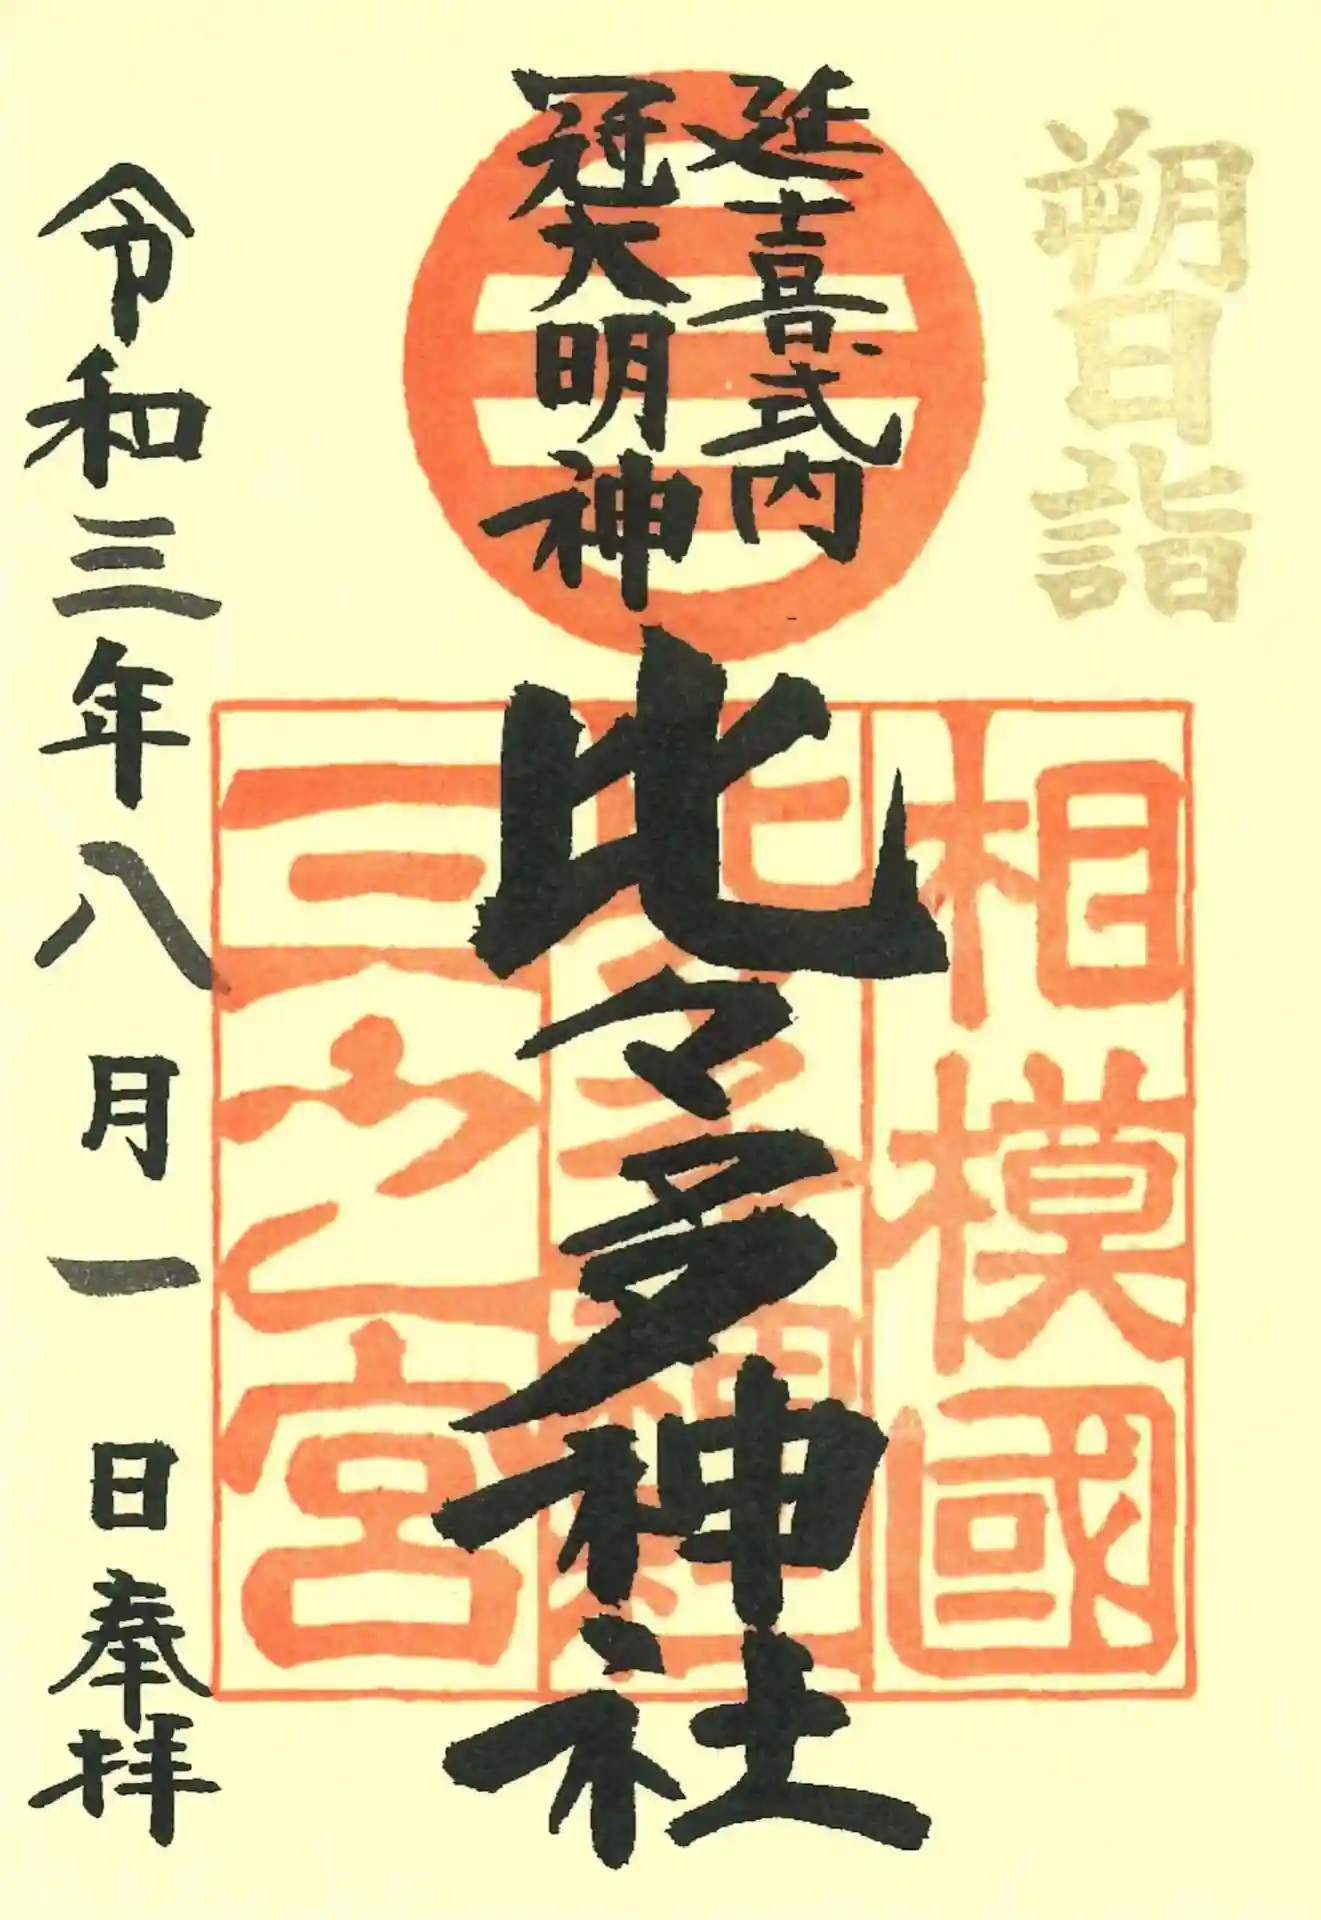 朔日詣
延喜式内
冠大明神
比々多神社
相模國
三之宮
令和三年八月一日奉拝